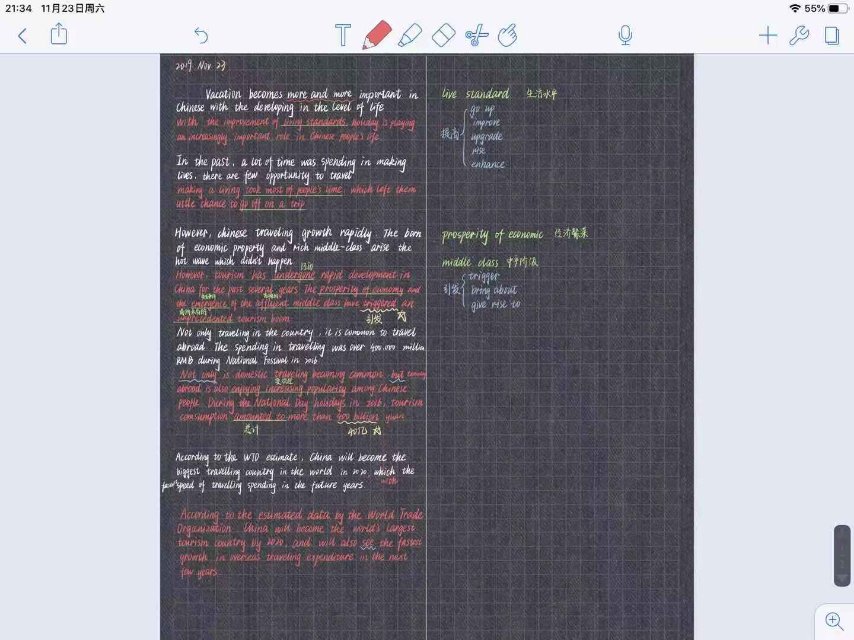 21:34 11月23日周六
55%
2019. Nov. 23
Vacation becomes more and more important in
Chinese with the developing in the level of life
With the improvement of living standards, holiday is playing
an increasingly important role in Chinese people's life.
In the past, a lot of time was spending in making
lives, there are few opportunity to travel
making a living took most of people's time, which left them
little chance to go off on a trip
However, chinese traveling growth rapidly. The born
of economic property and rich middle-class arise the
hot wave which didn't happen.
However, tourism has undergone rapid development in
经历
China for the past several years. The prosperity of economy and
the emergence of the affluent middle class have triggered an
unprecedented tourism boom.
引发
Not only traveling in the country, it is common to travel
abroad. The spending in travelling was over 400.000 million
RMB during National Festival in 2016
Not only is domestic traveling becoming common, but
abroad is also enjoying increasing popularity among Chinese
people. During the National Day holidays in 2016, tourism
consumption amounted to more than 400 billion yuan
总计
40亿
According to the WTO estimate, China will become the
biggest travelling country in the world in 2020, which the
with
speed of travelling spending in the future years.
According to the estimated data by the World Trade
Organization, China will become the world's largest
tourism country by 2020, and will also see the fastest
growth in overseas traveling expenditure in the next
few years.
live standard 生活水平
提高
go up
improve
upgrade
rise
enhance
prosperity of economic 经济繁荣
middle class 中产阶级
引发
trigger
bring about
give rise to